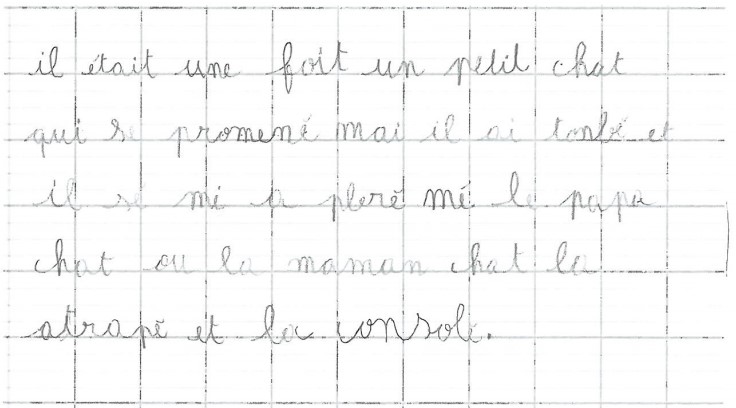 il était une foit un petit chat
qui se promené mai il ai tonbé et
il sé mi a pleré mé le papa
chat ou la maman chat la
atrapé et la consolé.